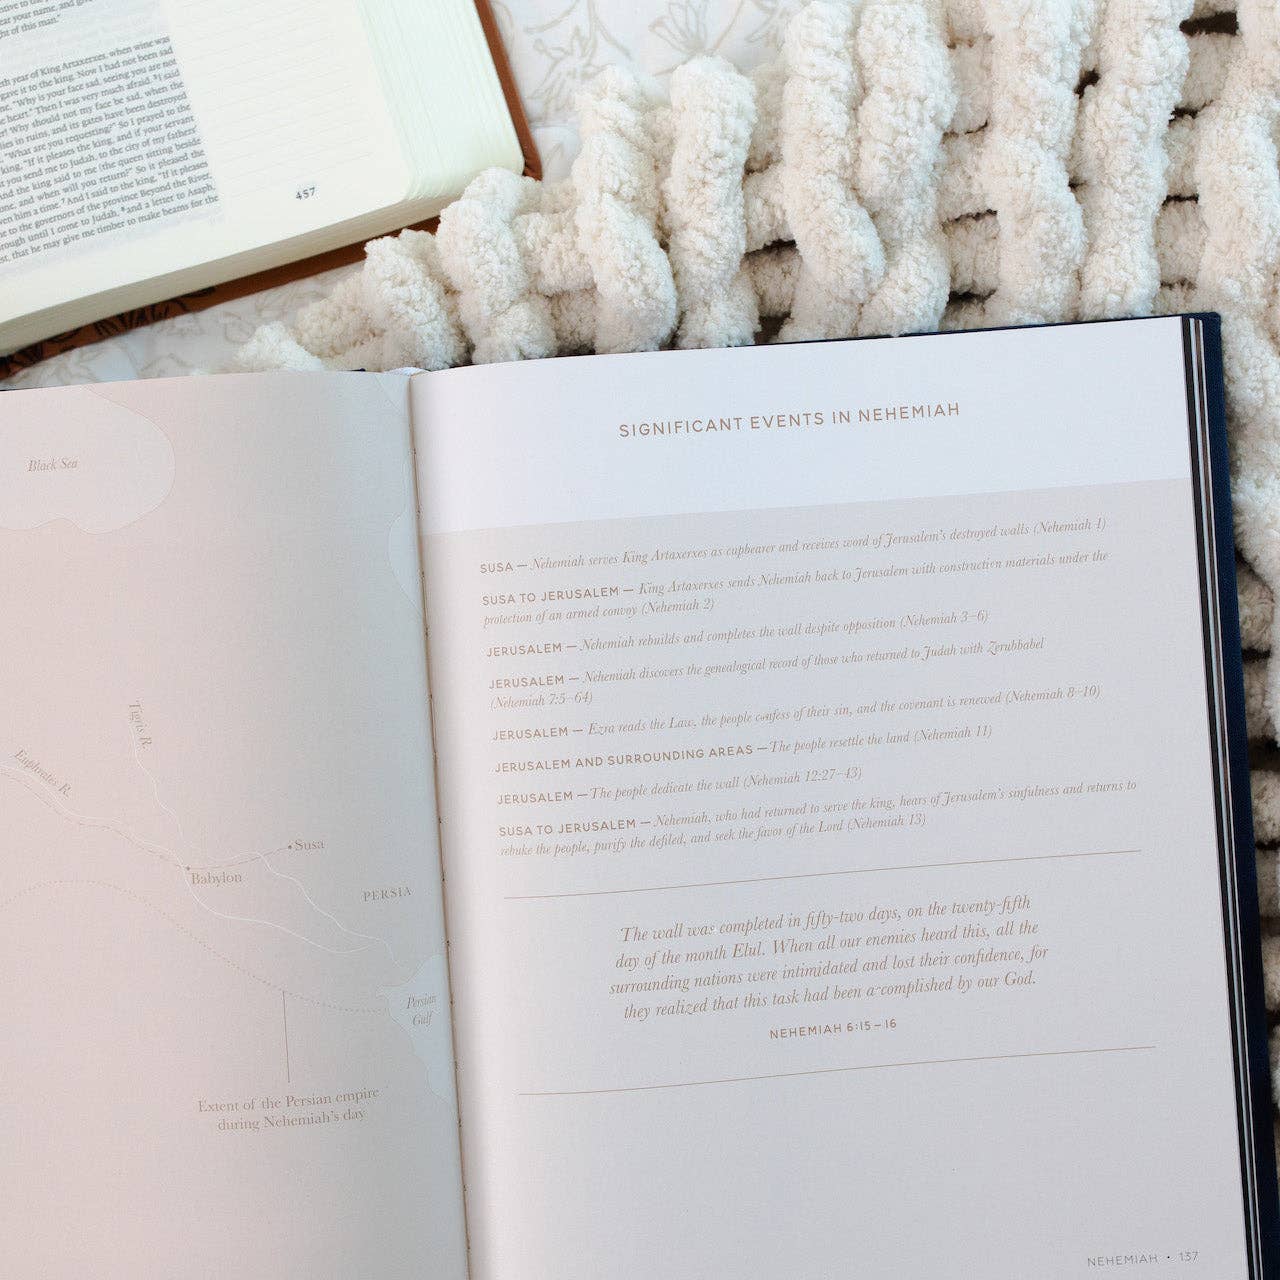 ear your name, and give
ht of this man."
eth year of King Artaxerxes, when wine was
gave it to the king. Now I had not been sad
me, "Why is your face sad, seeing you are not
he heart." Then I was very much afraid. ³I said
r! Why should not my face be sad, when the
lies in ruins, and its gates have been destroyed
"What are you requesting?" So I prayed to the
king, "If it pleases the king, and if your servant
t you send me to Judah, to the city of my fathers'
And the king said to me (the queen sitting beside
e, and when will you return?" So it pleased the
ven him a time. ⁷And I said to the king, "If it pleases
e to the governors of the province Beyond the River,
rough until I come to Judah, ⁸and a letter to Asaph,
st, that he may give me timber to make beams for the
457
Black Sea
Tigris R.
Euphrates R.
Susa
Babylon
PERSIA
Persian
Gulf
Extent of the Persian empire
during Nehemiah's day
SIGNIFICANT EVENTS IN NEHEMIAH
SUSA — Nehemiah serves King Artaxerxes as cupbearer and receives word of Jerusalem's destroyed walls (Nehemiah 1)
SUSA TO JERUSALEM — King Artaxerxes sends Nehemiah back to Jerusalem with construction materials under the
protection of an armed convoy (Nehemiah 2)
JERUSALEM — Nehemiah rebuilds and completes the wall despite opposition (Nehemiah 3–6)
JERUSALEM — Nehemiah discovers the genealogical record of those who returned to Judah with Zerubbabel
(Nehemiah 7:5–64)
JERUSALEM — Ezra reads the Law, the people confess of their sin, and the covenant is renewed (Nehemiah 8–10)
JERUSALEM AND SURROUNDING AREAS — The people resettle the land (Nehemiah 11)
JERUSALEM — The people dedicate the wall (Nehemiah 12:27–43)
SUSA TO JERUSALEM — Nehemiah, who had returned to serve the king, hears of Jerusalem's sinfulness and returns to
rebuke the people, purify the defiled, and seek the favor of the Lord (Nehemiah 13)
The wall was completed in fifty-two days, on the twenty-fifth
day of the month Elul. When all our enemies heard this, all the
surrounding nations were intimidated and lost their confidence, for
they realized that this task had been accomplished by our God.
NEHEMIAH 6:15–16
NEHEMIAH • 137